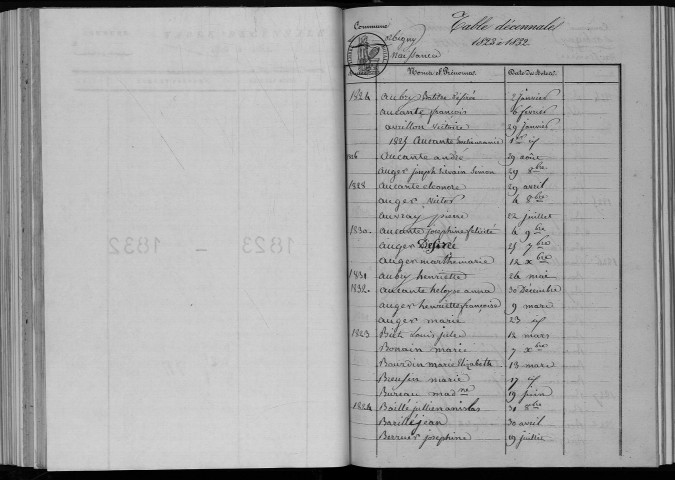 Commune
Table décennale
1823 à 1832.
Naissances
Noms et Prénoms. Date des Actes.
1824 Aubry Désiré 2 janvier
aucante françois 6 fevrier
avrillon victoire 29 janvier
1825 Aucante 1er id
1826 Aucante andré 29 août
auger joseph silvain Simon 29 8bre
1828 aucante eleonore 29 avril
auger victor 4 8bre
auvray pierre 12 juillet
1830. aucante josephine felicité 4 9bre
auger Desiré 25 7bre
auger marthe marie 12 Xbre
1831 aubry henriette 26 mai
1832. aucante heloyse anna 30 Décembre
auger henriette françoise 9 mars
auger marie 23 id
1823 Biet Louis jules 14 mars
Bonain marie 7 Xbre
Bourdin marie Elizabeth 13 mars
marie 17 id
Bureau mad.ne 19 juin
1824 Baillé jullien 31 8bre
Barillé jean 30 avril
Berruer josephine 19 juillet
1823 – 1832